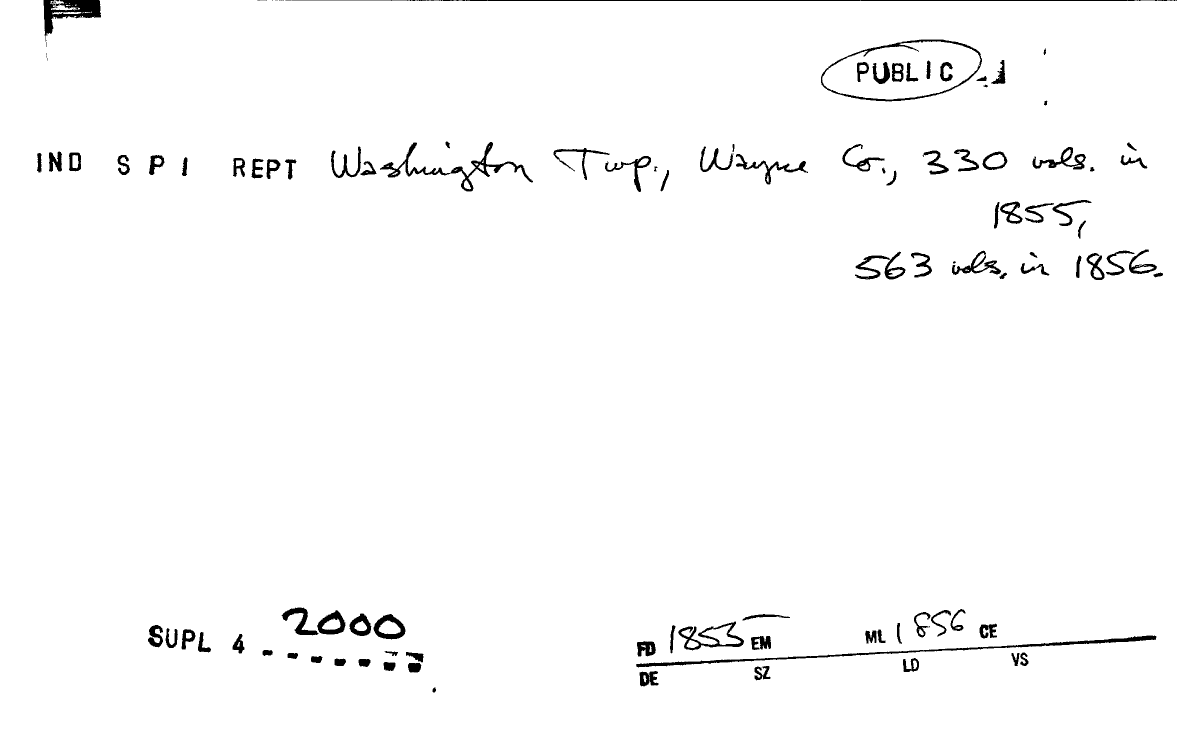 PUBLIC
IND S P I REPT Washington Twp., Wayne Co., 330 vols. in
1855,
563 vols. in 1856.
SUPL 4 2000
FD 1855 EM ML 1856 CE
DE SZ LD VS